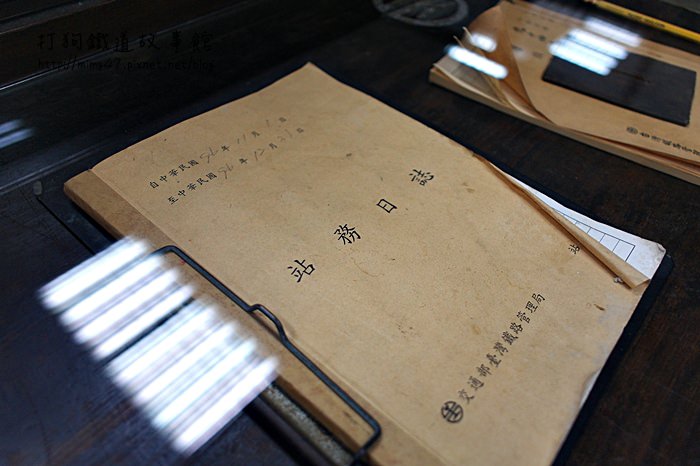 打狗鐵道故事館
http://mims47.pixnet.net/blog
自中華民國 96 年 11 月 1 日
至中華民國 96 年 12 月 31 日
站務日誌
站
交通部臺灣鐵路管理局